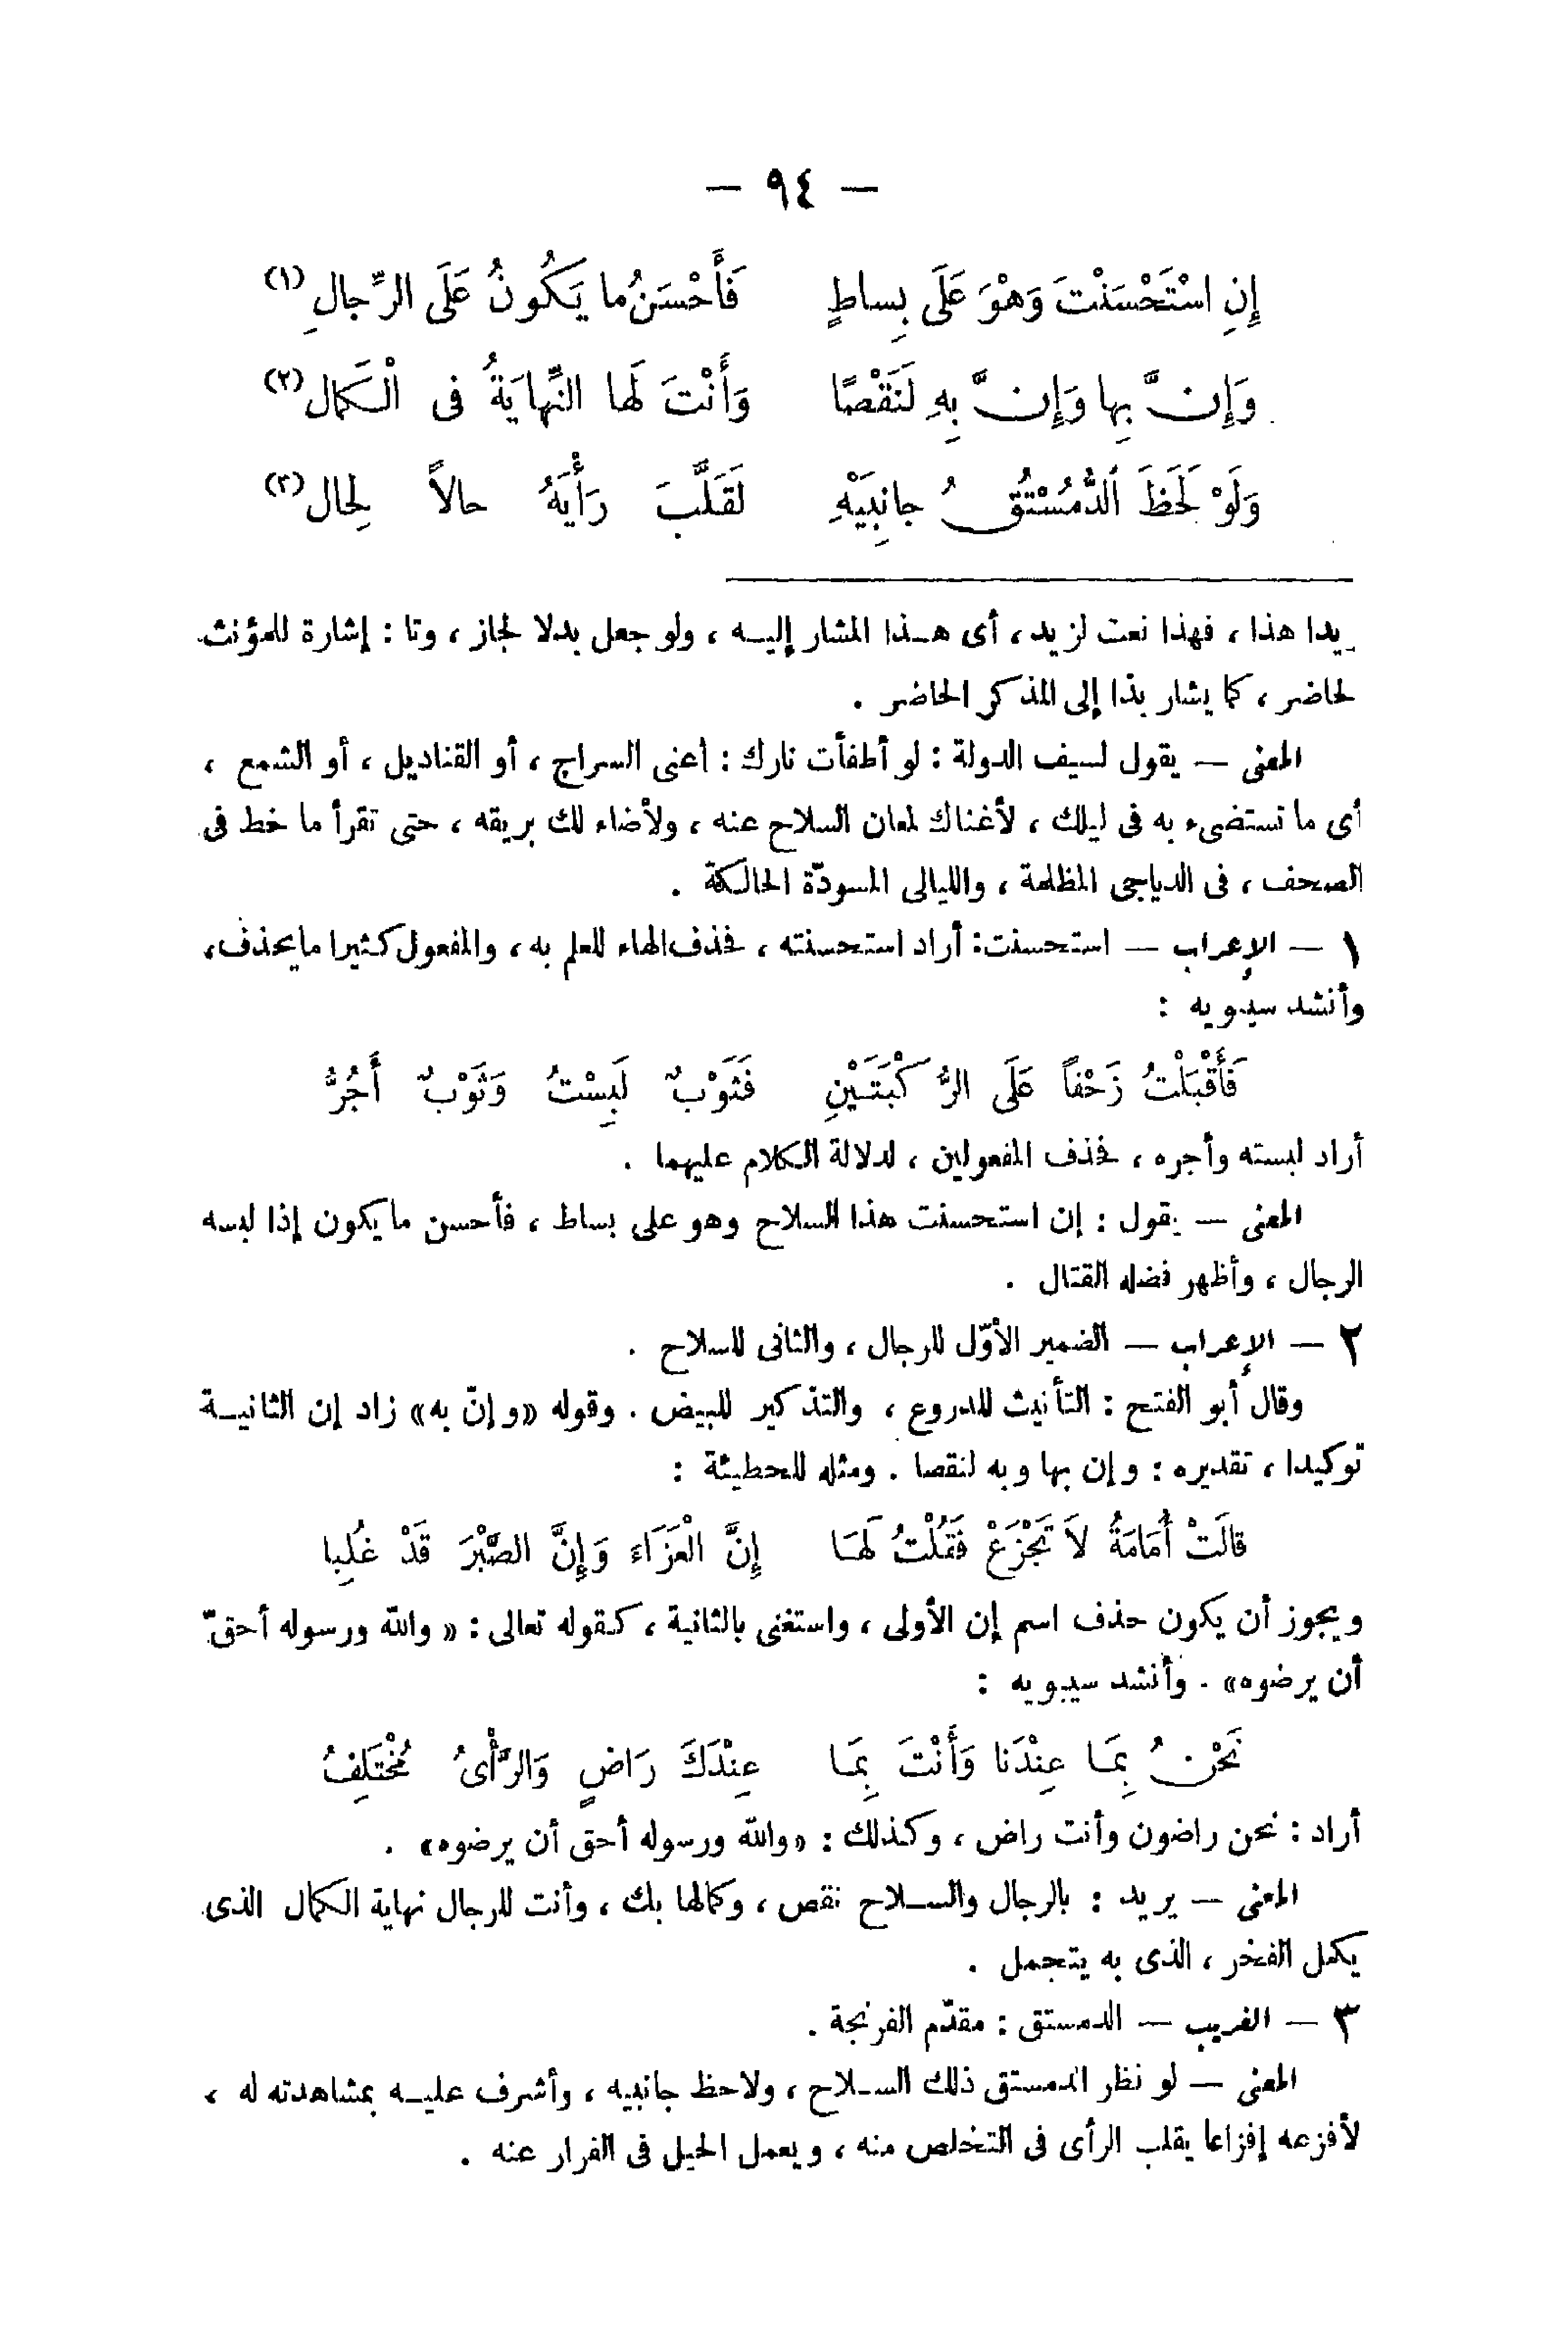 — ٩٤ —
إِنِ اسْتَحْسَنْتَ وَهْوَ عَلَى بِساطٍ فَأَحْسَنُ ما يَكُونُ عَلَى الرِّجالِ (١)
وَإِنَّ بِها وَإِنَّ بِهِ لَنَقْصًا وَأَنْتَ لَها النِّهايَةُ فى الْكَمال (٢)
وَلَوْ لَحَظَ الدُّمُسْتُقُ جانِبَيْهِ لَقَلَّبَ رَأْيَهُ حالاً لِحال (٣)
يدا هذا ، فهذا نعت لزيد ، أى هذا المشار إليه ، ولو جعل بدلا لجاز ، وتا : إشارة للمؤنث
لحاضر ، كما يشار بذا إلى المذكر الحاضر .
المعنى — يقول لسيف الدولة : لو أطفأت نارك : أعنى السراج ، أو القناديل ، أو الشمع ،
أى ما تستضىء به فى ليلك ، لأغناك لمعان السلاح عنه ، ولأضاء لك بريقه ، حتى تقرأ ما خط فى
الصحف ، فى الدياجى المظلمة ، والليالى المسودّة الحالكة .
١ — الإعراب — استحسنت : أراد استحسنته ، فحذف الهاء للعلم به ، والمفعول كثيرا ما يحذف ،
وأنشد سيبويه :
فَأَقْبَلْتُ زَحْفاً عَلَى الرُّكْبَتَيْنِ فَثَوْبٌ لَبِسْتُ وَثَوْبٌ أَجُرُّ
أراد لبسته وأجره ، فحذف المفعولين ، لدلالة الكلام عليهما .
المعنى — يقول : إن استحسنت هذا السلاح وهو على بساط ، فأحسن ما يكون إذا لبسه
الرجال ، وأظهر فضله القتال .
٢ — الإعراب — الضمير الأوّل للرجال ، والثانى للسلاح .
وقال أبو الفتح : التأنيث للدروع ، والتذكير للبيض . وقوله «وإنّ به» زاد إن الثانية
توكيدا ، تقديره : وإن بها وبه لنقصا . ومثله للحطيئة :
قالَتْ أُمَامَةُ لاَ تَجْزَعْ فَقُلْتُ لَهَا إِنَّ الْعَزَاءَ وَإِنَّ الصَّبْرَ قَدْ غُلِبا
ويجوز أن يكون حذف اسم إن الأولى ، واستغنى بالثانية ، كقوله تعالى : « والله ورسوله أحقّ
أن يرضوه» . وأنشد سيبويه :
نَحْنُ بِمَا عِنْدَنا وَأَنْتَ بِمَا عِنْدَكَ رَاضٍ وَالرَّأْىُ مُخْتَلِفُ
أراد : نحن راضون وأنت راض ، وكذلك : «والله ورسوله أحق أن يرضوه» .
المعنى — يريد : بالرجال والسلاح نقص ، وكمالها بك ، وأنت للرجال نهاية الكمال الذى
يكمل الفخر ، الذى به يتجمل .
٣ — الغريب — الدمستق : مقدّم الفرنجة .
المعنى — لو نظر الدمستق ذلك السلاح ، ولاحظ جانبيه ، وأشرف عليه بمشاهدته له ،
لأفزعه إفزاعا يقلب الرأى فى التخلص منه ، ويعمل الحيل فى الفرار عنه .